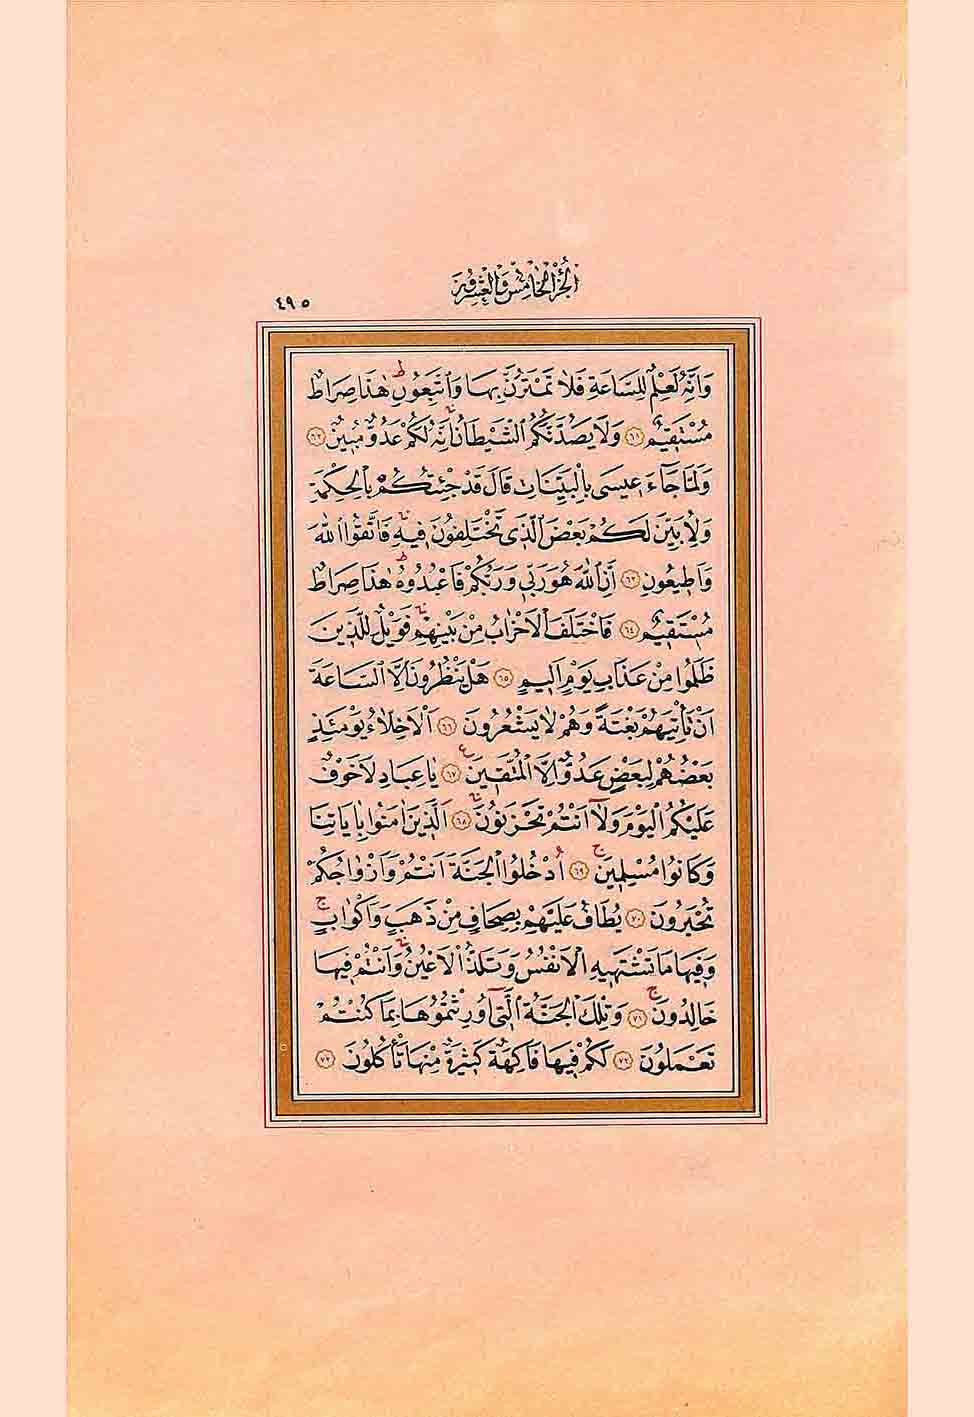 الجزء الخامس والعشرون
٤٩٥
وَاِنَّهُ لَعِلْمٌ لِلسَّاعَةِ فَلَا تَمْتَرُنَّ بِهَا وَاتَّبِعُونِ ط هٰذَا صِرَاطٌ
مُسْتَقِيمٌ ﴿٦١﴾ وَلَا يَصُدَّنَّكُمُ الشَّيْطَانُ اِنَّهُ لَكُمْ عَدُوٌّ مُبِينٌ ﴿٦٢﴾
وَلَمَّا جَٓاءَ عِيسٰى بِالْبَيِّنَاتِ قَالَ قَدْ جِئْتُكُمْ بِالْحِكْمَةِ
وَلِاُبَيِّنَ لَكُمْ بَعْضَ الَّذِي تَخْتَلِفُونَ فِيهِ فَاتَّقُوا اللّٰهَ
وَاَطِيعُونِ ﴿٦٣﴾ اِنَّ اللّٰهَ هُوَ رَبِّي وَرَبُّكُمْ فَاعْبُدُوهُ ط هٰذَا صِرَاطٌ
مُسْتَقِيمٌ ﴿٦٤﴾ فَاخْتَلَفَ الْاَحْزَابُ مِنْ بَيْنِهِمْ فَوَيْلٌ لِلَّذِينَ
ظَلَمُوا مِنْ عَذَابِ يَوْمٍ اَلِيمٍ ﴿٦٥﴾ هَلْ يَنْظُرُونَ اِلَّا السَّاعَةَ
اَنْ تَأْتِيَهُمْ بَغْتَةً وَهُمْ لَا يَشْعُرُونَ ﴿٦٦﴾ اَلْاَخِلَّٓاءُ يَوْمَئِذٍ
بَعْضُهُمْ لِبَعْضٍ عَدُوٌّ اِلَّا الْمُتَّقِينَ ع ﴿٦٧﴾ يَا عِبَادِ لَا خَوْفٌ
عَلَيْكُمُ الْيَوْمَ وَلَٓا اَنْتُمْ تَحْزَنُونَ ﴿٦٨﴾ اَلَّذِينَ اٰمَنُوا بِاٰيَاتِنَا
وَكَانُوا مُسْلِمِينَ ج ﴿٦٩﴾ اُدْخُلُوا الْجَنَّةَ اَنْتُمْ وَاَزْوَاجُكُمْ
تُحْبَرُونَ ﴿٧٠﴾ يُطَافُ عَلَيْهِمْ بِصِحَافٍ مِنْ ذَهَبٍ وَاَكْوَابٍ ج
وَفِيهَا مَا تَشْتَهِيهِ الْاَنْفُسُ وَتَلَذُّ الْاَعْيُنُ وَاَنْتُمْ فِيهَا
خَالِدُونَ ج ﴿٧١﴾ وَتِلْكَ الْجَنَّةُ الَّتِٓي اُورِثْتُمُوهَا بِمَا كُنْتُمْ
تَعْمَلُونَ ﴿٧٢﴾ لَكُمْ فِيهَا فَاكِهَةٌ كَثِيرَةٌ مِنْهَا تَأْكُلُونَ ﴿٧٣﴾